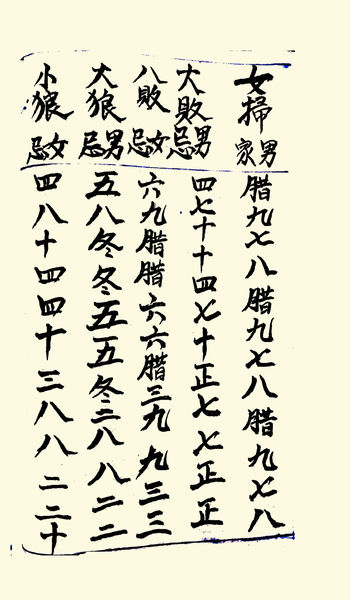 女掃男家臘九七八臘九七八臘九七八
大敗男忌四七十十四七十正七七正正
八敗女忌六九臘臘六六臘三九九三三
大狼男忌五八冬冬五五冬二八八二二
小狼女忌四八十四四十三八八二二十